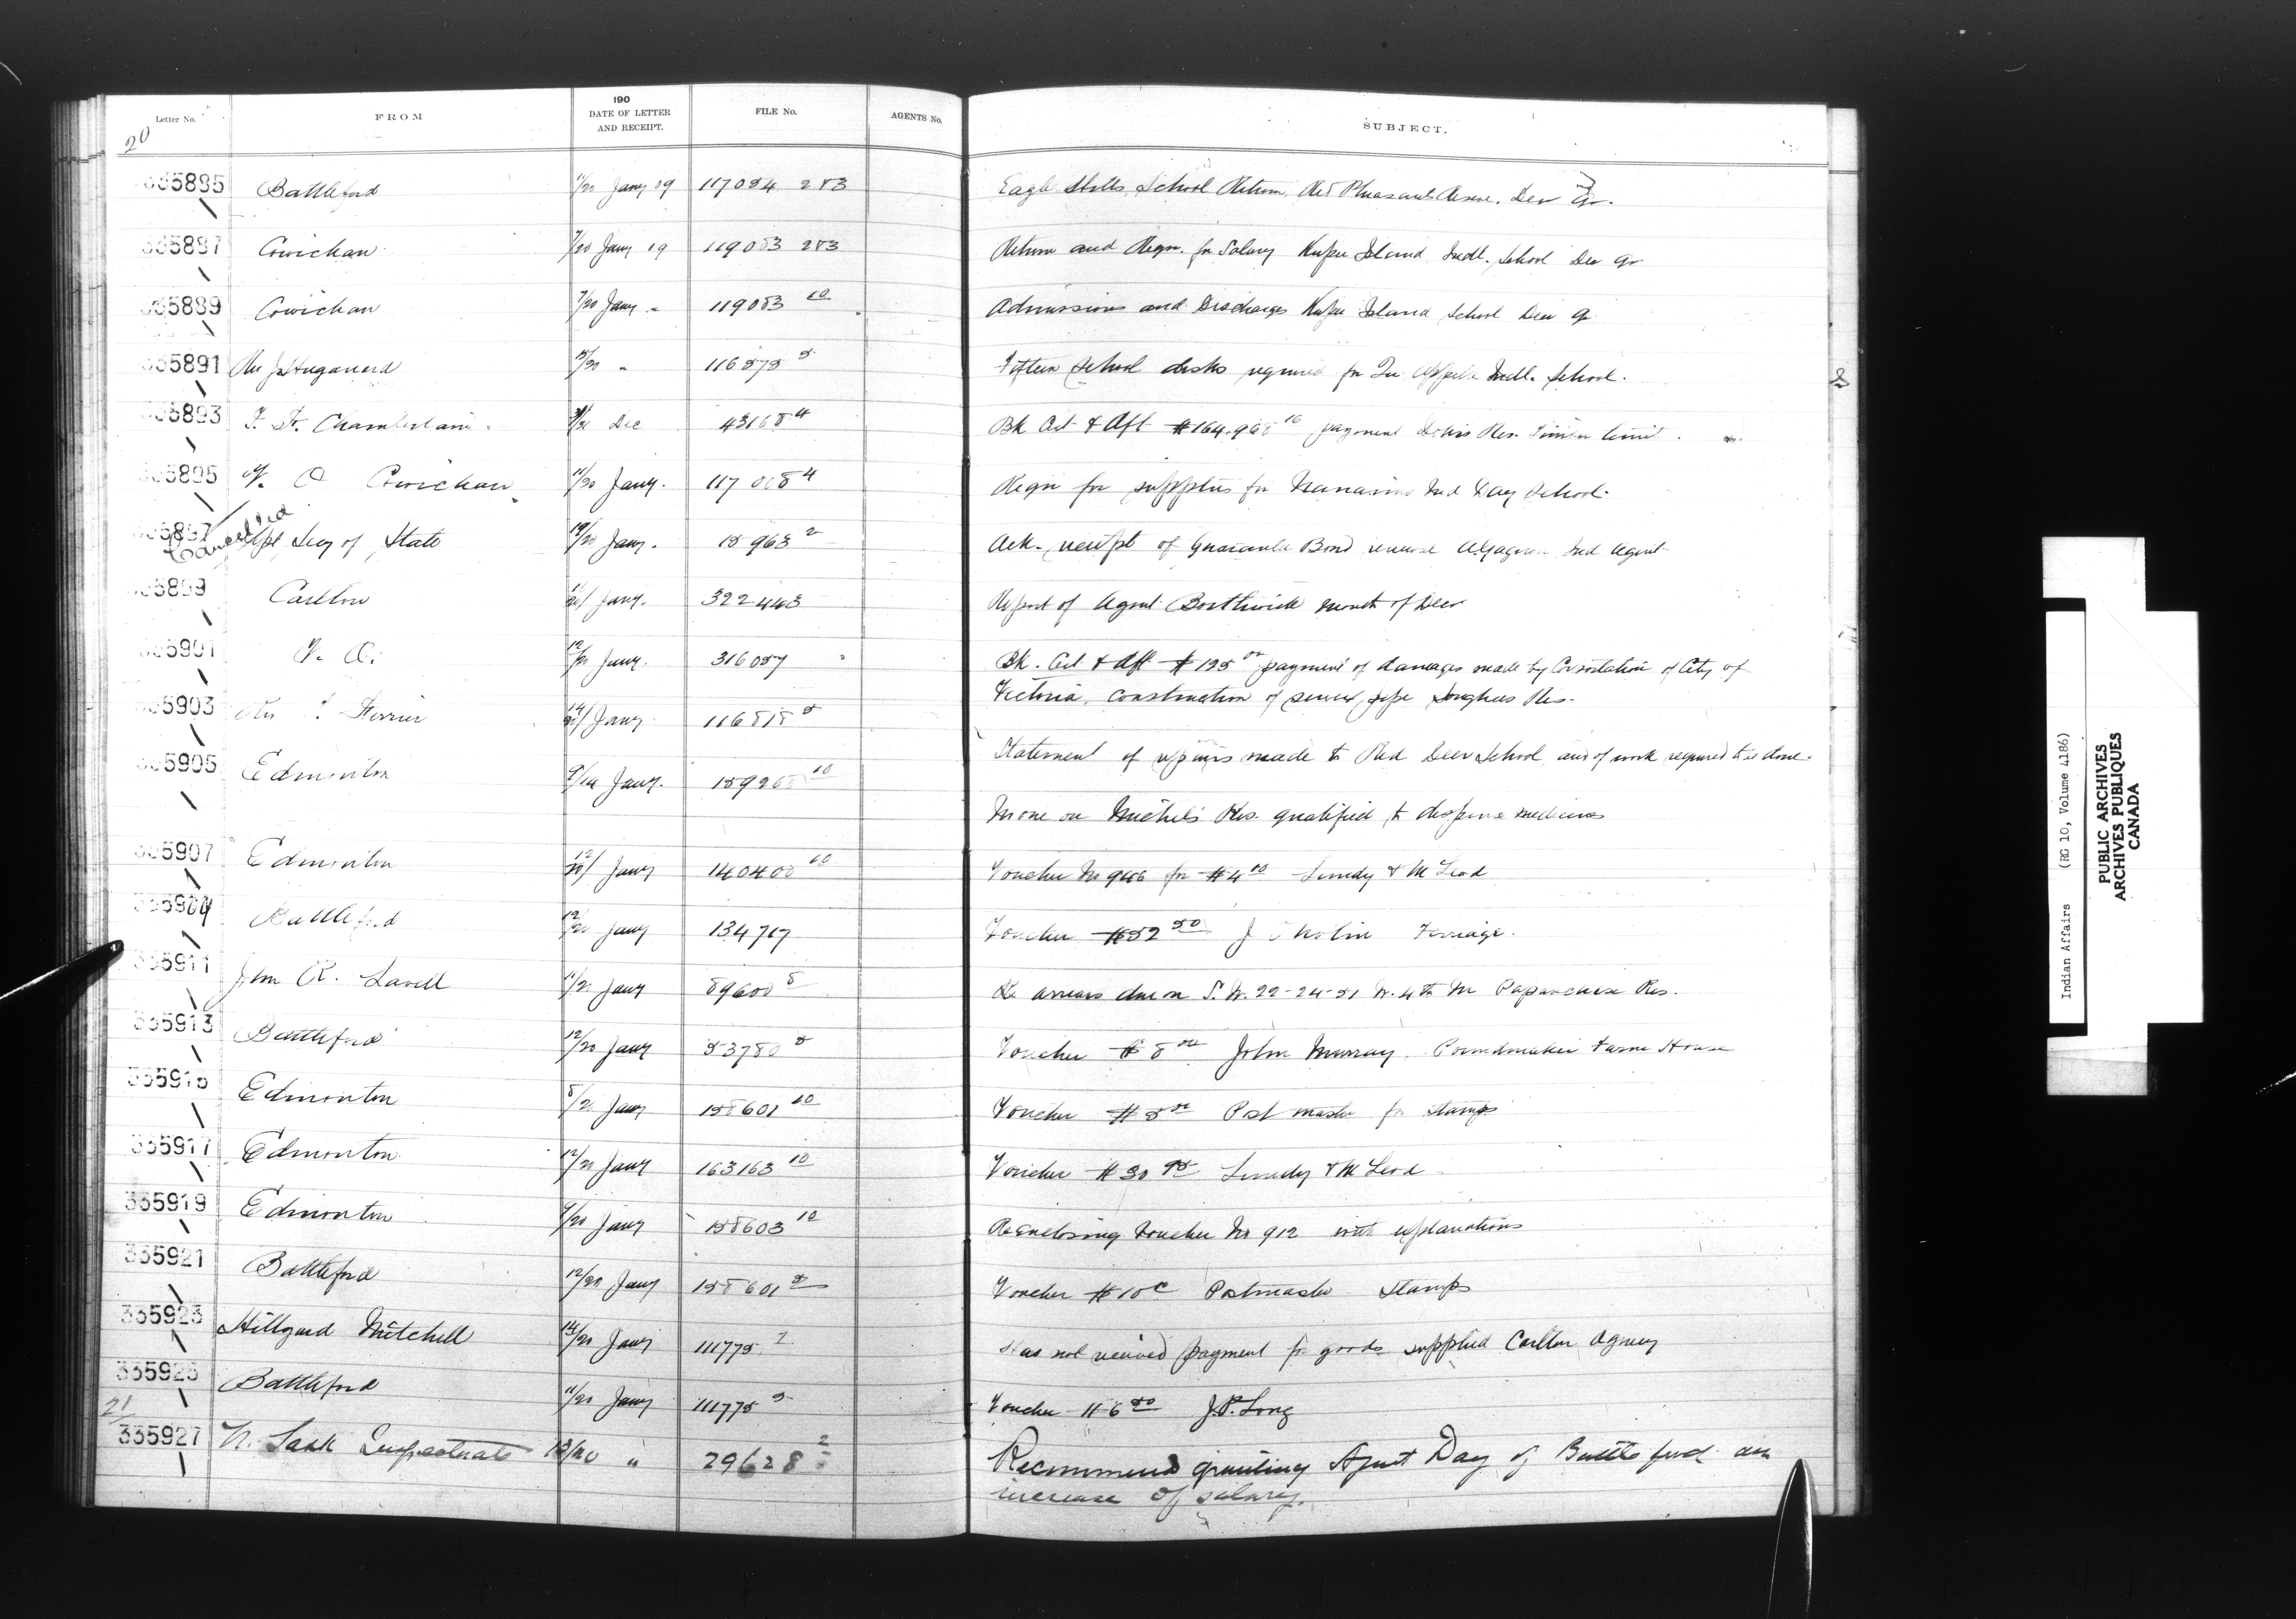 Letter No.
FROM
190
DATE OF LETTER
AND RECEIPT.
FILE No.
AGENTS No.
SUBJECT.
20
5885 Battleford 11/20 Jany 09 117084 2&3 Eagle Hills School Return, Red Pheasants Reserve. Dec qr.
5887 Cowichan 7/20 Jany 19 119083 2&3 Return and Reqn. for Salary Kuper Island Indl. School Dec qr
5889 Cowichan 7/20 Jany " 119083 10 Admissions and Discharges Kuper Island School Dec qr
5891 Rev J. Hugonard 15/20 " 116575 5 Fifteen school desks required for Qu'Appelle Indl. School.
5893 Chamberlain Dec 43168 4 Bk Cet & Aft $164.968 16 payment Res. Timber limit.
5895 V. O Cowichan 11/20 Jany. 117008 4 Reqn for supplies for Nanaimo Ind Day School.
5897 Cancelled Secy of State 19/20 Jany. 15963 2 Ack. receipt of Guarantee Bond renewal A. Gagnon Ind Agent
5899 Carlton 11/20/ Jany. 322443 Report of Agent Borthwick month of Decr
5901 V. O. 12/20 Jany. 316057 Bk. Cet & Aft $125 00 payment of damages made by Corporation of City of
Victoria, construction of sewer pipe Songhees Res.
5903 Rev Ferrier 14/20/ Jany 116818 5
Statement of repairs made to Red Deer School and of work required to be done.
5905 Edmonton 9/14 Jany. 159268 10
None on Michel's Res. qualified to dispense medicines
5907 Edmonton 12/20/ Jany 140400 10 Voucher No 946 for $4 10 Lundy & McLeod
5909 Battleford 12/20 Jany 134717 Voucher $52 50 J Nolin Ferriage.
335911 John R. Lavell 11/20 Jany 89600 8 Re arrears due on S.W. 22-24-51 W. 4th M Papaschase Res.
335913 Battleford 12/20 Jany 53780 5 Voucher $8 00 John Murray. Poundmaker Farm House
335915 Edmonton 8/20 Jany 158601 10 Voucher $5 00 Postmaster for stamps
335917 Edmonton 12/20 Jany 163163 10 Voucher $30 95 Lundy & McLeod
335919 Edmonton 9/20 Jany 158603 10 Re Enclosing Voucher No 912 with explanations
335921 Battleford 12/20 Jany 158601 5 Voucher $10c Postmaster Stamps
335923 Hillyard Mitchell 14/20 Jany 111775 7 Has not received payment for goods supplied Carlton Agency
335925 Battleford 11/20 Jany 111775 5 Voucher $6 50 J.P. Long
21
335927 N. Sask Inspectorate 13/20 " 29628 2 Recommend granting Agent Day of Battleford an
increase of salary.
Indian Affairs (RG 10, Volume 4186)
PUBLIC ARCHIVES
ARCHIVES PUBLIQUES
CANADA